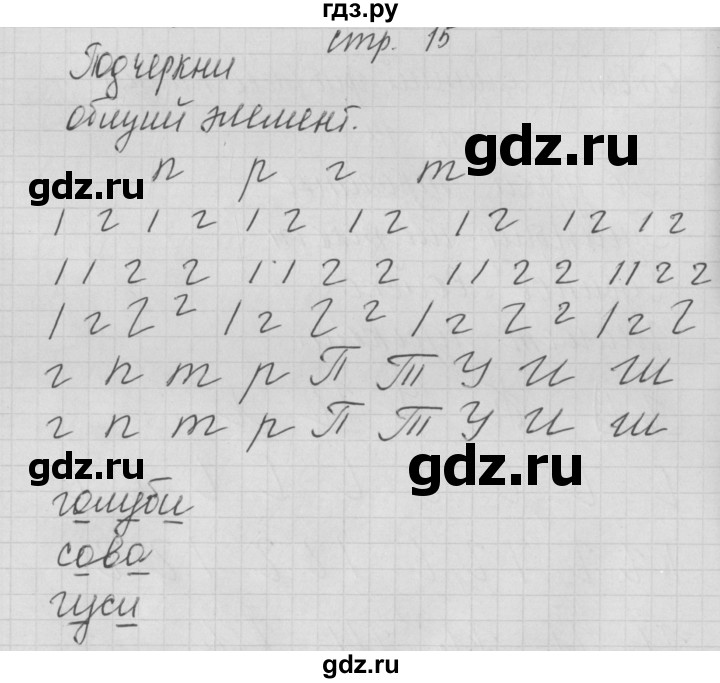 гдз.ру
стр. 15
Подчеркни
общий элемент.
п р г т
gdz.ru gdz.ru
1 г 1 г 1 2 1 2 1 2 1 2 1 2
1 1 г г 1 1 2 2 1 1 2 2 1 1 2 2
1 г 2 2 1 г 2 2 1 г 2 2 1 г 2
г п т р П Т У И Ш
г п т р П Т У И Ш
gdz.ru gdz.ru
голуби
сова
гуси
gdz.ru